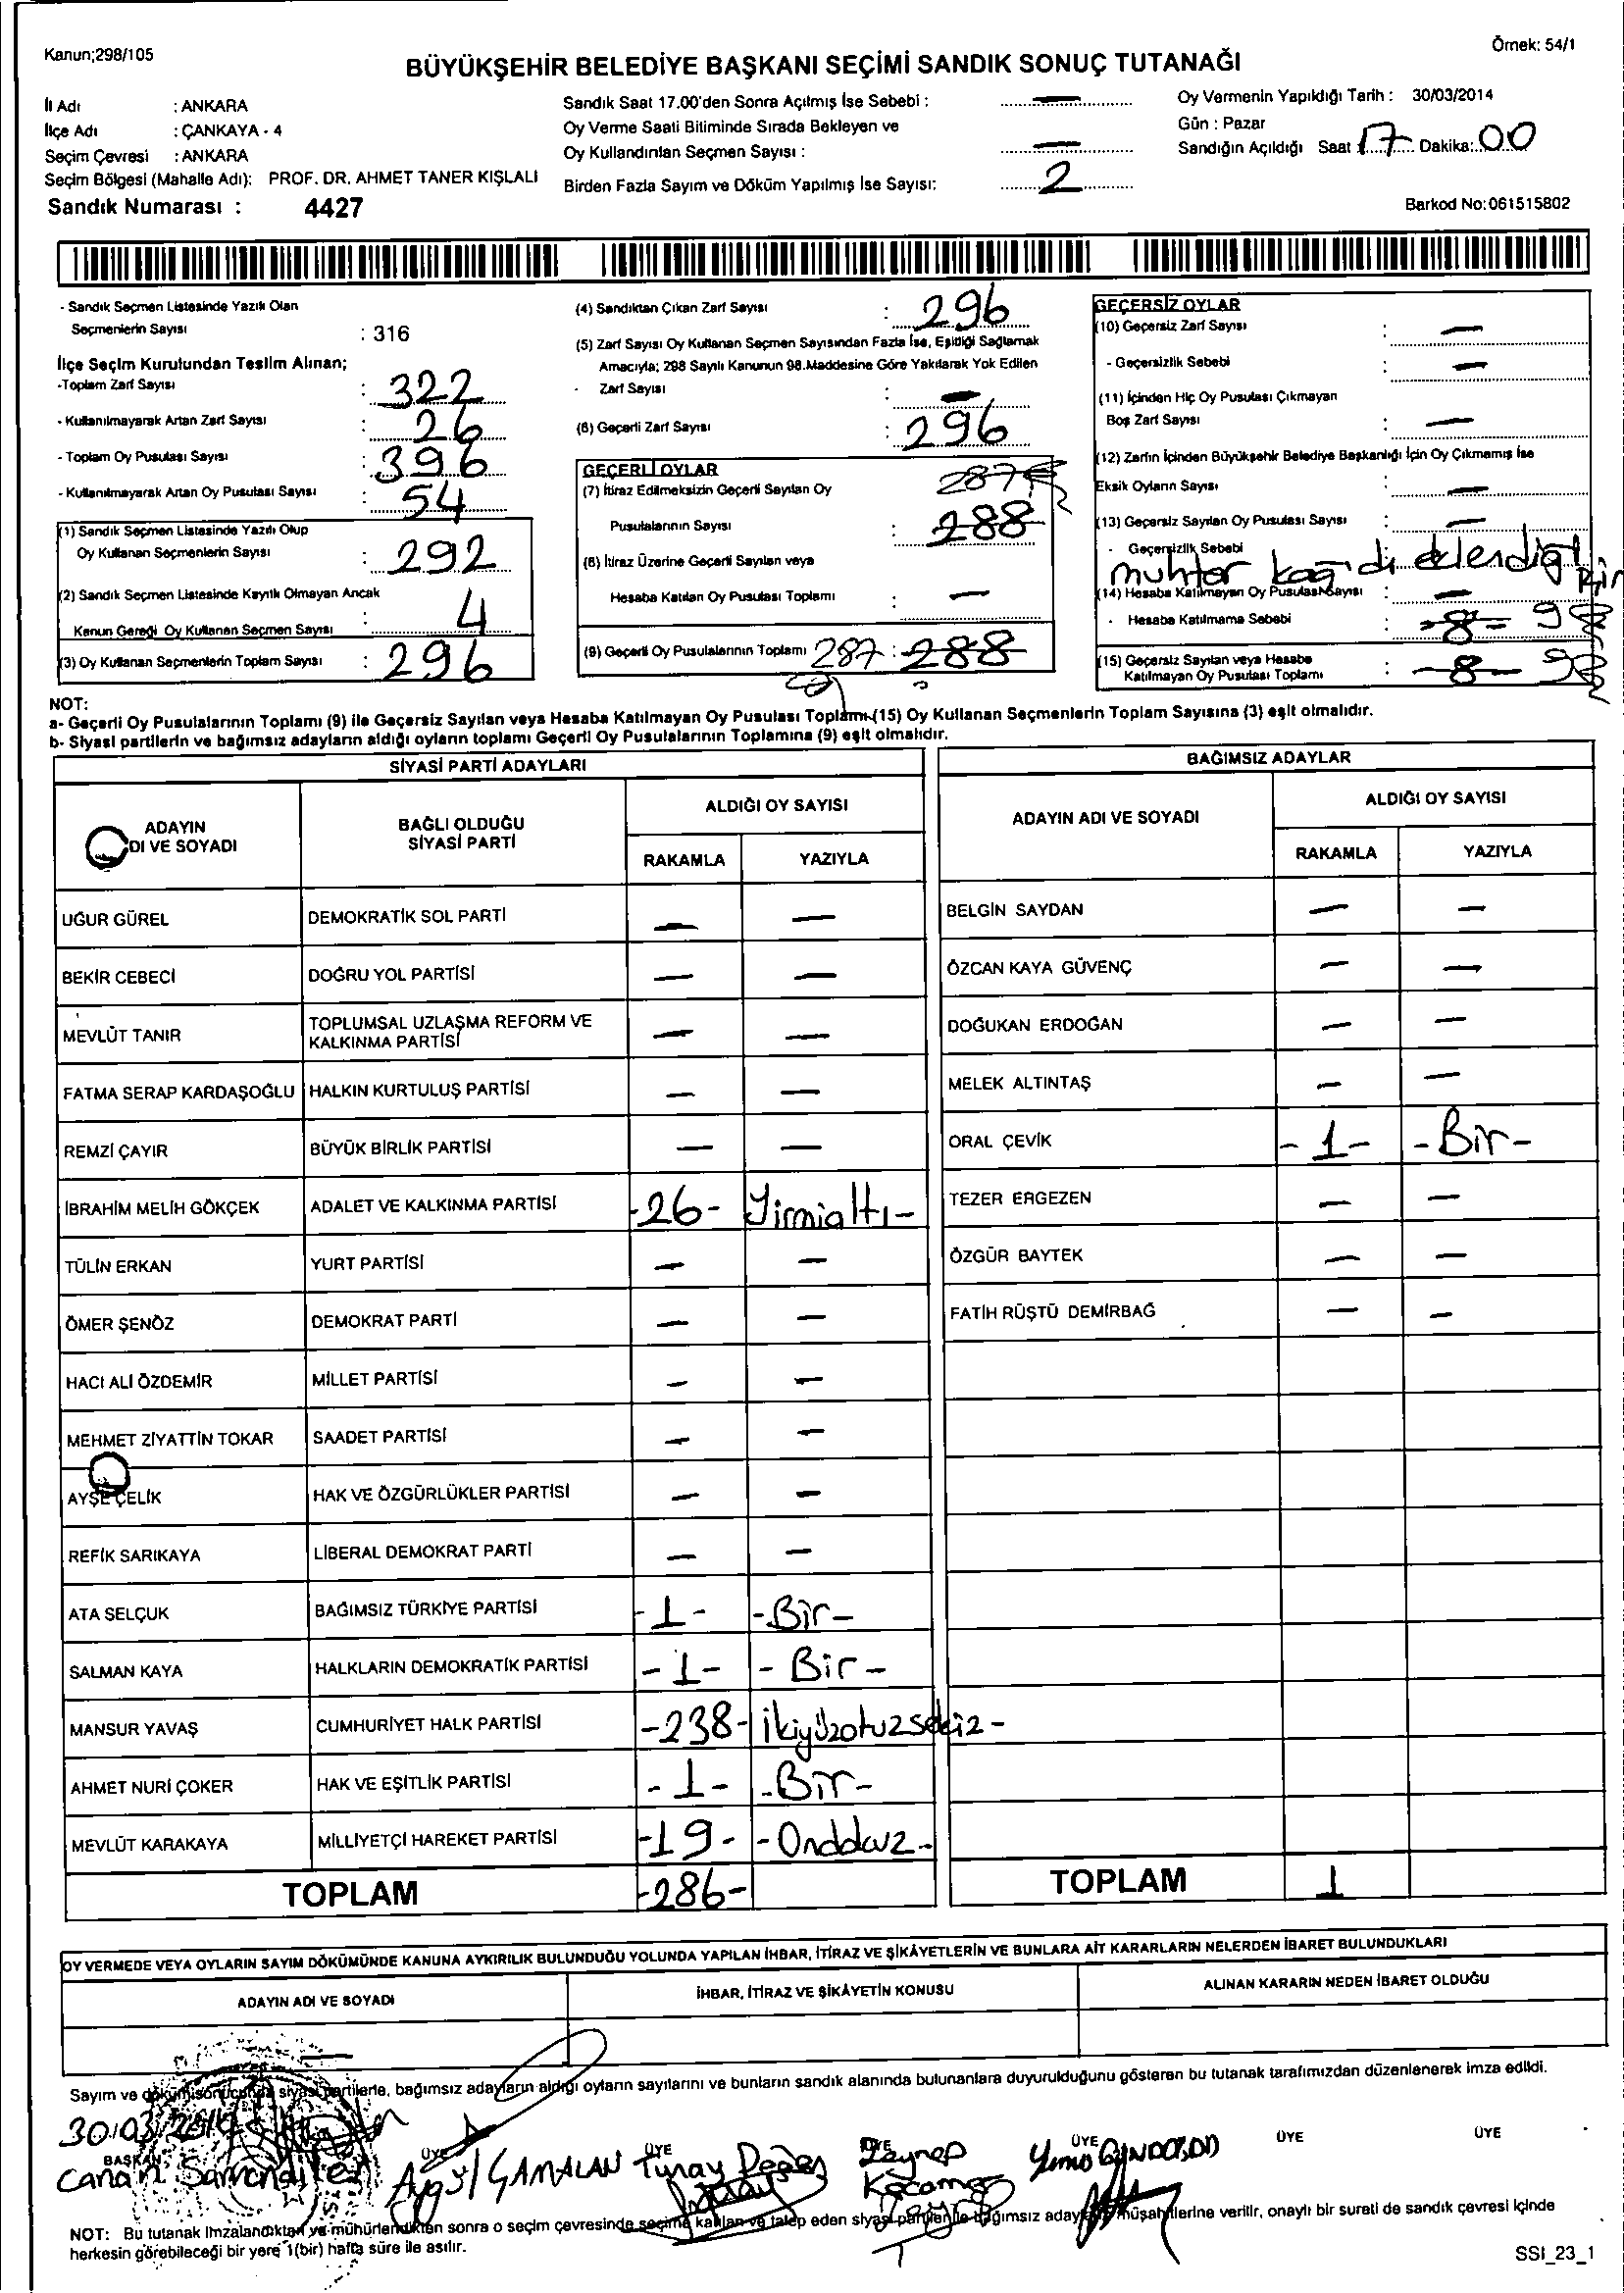 Kanun;298/105
Örnek: 54/1
BÜYÜKŞEHİR BELEDİYE BAŞKANI SEÇİMİ SANDIK SONUÇ TUTANAĞI
İl Adı : ANKARA
İlçe Adı : ÇANKAYA - 4
Seçim Çevresi : ANKARA
Seçim Bölgesi (Mahalle Adı): PROF. DR. AHMET TANER KIŞLALI
Sandık Numarası : 4427
Sandık Saat 17.00'den Sonra Açılmış İse Sebebi : —
Oy Verme Saati Bitiminde Sırada Bekleyen ve
Oy Kullandırılan Seçmen Sayısı : —
Birden Fazla Sayım ve Döküm Yapılmış İse Sayısı: 2
Oy Vermenin Yapıldığı Tarih : 30/03/2014
Gün : Pazar
Sandığın Açıldığı Saat : 17 Dakika: 00
Barkod No: 061515802
- Sandık Seçmen Listesinde Yazılı Olan
Seçmenlerin Sayısı : 316
İlçe Seçim Kurulundan Teslim Alınan;
-Toplam Zarf Sayısı : 322
- Kullanılmayarak Artan Zarf Sayısı : 26
- Toplam Oy Pusulası Sayısı : 396
- Kullanılmayarak Artan Oy Pusulası Sayısı : 54
(1) Sandık Seçmen Listesinde Yazılı Olup
Oy Kullanan Seçmenlerin Sayısı : 292
(2) Sandık Seçmen Listesinde Kayıtlı Olmayan Ancak
Kanun Gereği Oy Kullanan Seçmen Sayısı : 4
(3) Oy Kullanan Seçmenlerin Toplam Sayısı : 296
(4) Sandıktan Çıkan Zarf Sayısı : 296
(5) Zarf Sayısı Oy Kullanan Seçmen Sayısından Fazla İse, Eşitliği Sağlamak
Amacıyla; 298 Sayılı Kanunun 98.Maddesine Göre Yakılarak Yok Edilen
- Zarf Sayısı : —
(6) Geçerli Zarf Sayısı : 296
GEÇERLİ OYLAR
(7) İtiraz Edilmeksizin Geçerli Sayılan Oy 287
Pusulalarının Sayısı : 288
(8) İtiraz Üzerine Geçerli Sayılan veya
Hesaba Katılan Oy Pusulası Toplamı : —
(9) Geçerli Oy Pusulalarının Toplamı 287 : 288
GEÇERSİZ OYLAR
(10) Geçersiz Zarf Sayısı : —
- Geçersizlik Sebebi : —
(11) İçinden Hiç Oy Pusulası Çıkmayan
Boş Zarf Sayısı : —
(12) Zarfın İçinden Büyükşehir Belediye Başkanlığı İçin Oy Çıkmamış İse
Eksik Oyların Sayısı : —
(13) Geçersiz Sayılan Oy Pusulası Sayısı : —
- Geçersizlik Sebebi
muhtar kağıdı eklendiği
(14) Hesaba Katılmayan Oy Pusulası Sayısı : —
- Hesaba Katılmama Sebebi : -8- 9
(15) Geçersiz Sayılan veya Hesaba
Katılmayan Oy Pusulası Toplamı : -8- 9
NOT:
a- Geçerli Oy Pusulalarının Toplamı (9) ile Geçersiz Sayılan veya Hesaba Katılmayan Oy Pusulası Toplamı (15) Oy Kullanan Seçmenlerin Toplam Sayısına (3) eşit olmalıdır.
b- Siyasi partilerin ve bağımsız adayların aldığı oyların toplamı Geçerli Oy Pusulalarının Toplamına (9) eşit olmalıdır.
SİYASİ PARTİ ADAYLARI
ADAYIN
ADI VE SOYADI
BAĞLI OLDUĞU
SİYASİ PARTİ
ALDIĞI OY SAYISI
RAKAMLA YAZIYLA
UĞUR GÜREL DEMOKRATİK SOL PARTİ — —
BEKİR CEBECİ DOĞRU YOL PARTİSİ — —
MEVLÜT TANIR TOPLUMSAL UZLAŞMA REFORM VE
KALKINMA PARTİSİ — —
FATMA SERAP KARDAŞOĞLU HALKIN KURTULUŞ PARTİSİ — —
REMZİ ÇAYIR BÜYÜK BİRLİK PARTİSİ — —
İBRAHİM MELİH GÖKÇEK ADALET VE KALKINMA PARTİSİ -26- Yirmialtı-
TÜLİN ERKAN YURT PARTİSİ — —
ÖMER ŞENÖZ DEMOKRAT PARTİ — —
HACI ALİ ÖZDEMİR MİLLET PARTİSİ — —
MEHMET ZİYATTİN TOKAR SAADET PARTİSİ — —
AYŞE ÇELİK HAK VE ÖZGÜRLÜKLER PARTİSİ — —
REFİK SARIKAYA LİBERAL DEMOKRAT PARTİ — —
ATA SELÇUK BAĞIMSIZ TÜRKİYE PARTİSİ -1- -Bir-
SALMAN KAYA HALKLARIN DEMOKRATİK PARTİSİ -1- -Bir-
MANSUR YAVAŞ CUMHURİYET HALK PARTİSİ -238- ikiyüzotuzsekiz-
AHMET NURİ ÇOKER HAK VE EŞİTLİK PARTİSİ -1- -Bir-
MEVLÜT KARAKAYA MİLLİYETÇİ HAREKET PARTİSİ -19- -Ondokuz-
TOPLAM -286-
BAĞIMSIZ ADAYLAR
ADAYIN ADI VE SOYADI
ALDIĞI OY SAYISI
RAKAMLA YAZIYLA
BELGİN SAYDAN — —
ÖZCAN KAYA GÜVENÇ — —
DOĞUKAN ERDOĞAN — —
MELEK ALTINTAŞ — —
ORAL ÇEVİK -1- -Bir-
TEZER ERGEZEN — —
ÖZGÜR BAYTEK — —
FATİH RÜŞTÜ DEMİRBAĞ — —
TOPLAM 1
OY VERMEDE VEYA OYLARIN SAYIM DÖKÜMÜNDE KANUNA AYKIRILIK BULUNDUĞU YOLUNDA YAPILAN İHBAR, İTİRAZ VE ŞİKÂYETLERİN VE BUNLARA AİT KARARLARIN NELERDEN İBARET BULUNDUKLARI
ADAYIN ADI VE SOYADI İHBAR, İTİRAZ VE ŞİKÂYETİN KONUSU ALINAN KARARIN NEDEN İBARET OLDUĞU
Sayım ve dökümü sonucunda siyasi partilerle, bağımsız adayların aldığı oyların sayılarını ve bunların sandık alanında bulunanlara duyurulduğunu gösteren bu tutanak tarafımızdan düzenlenerek imza edildi.
30.03.2014
BAŞKAN ÜYE ÜYE ÜYE ÜYE ÜYE ÜYE
Canan Aygül ÇAMALAN Tunay Zeynep
NOT: Bu tutanak imzalandıktan ve mühürlendikten sonra o seçim çevresinde seçime katılan ve talep eden siyasi partiler ile bağımsız aday müşahitlerine verilir, onaylı bir sureti de sandık çevresi içinde
herkesin görebileceği bir yere 1(bir) hafta süre ile asılır.
SSI_23_1